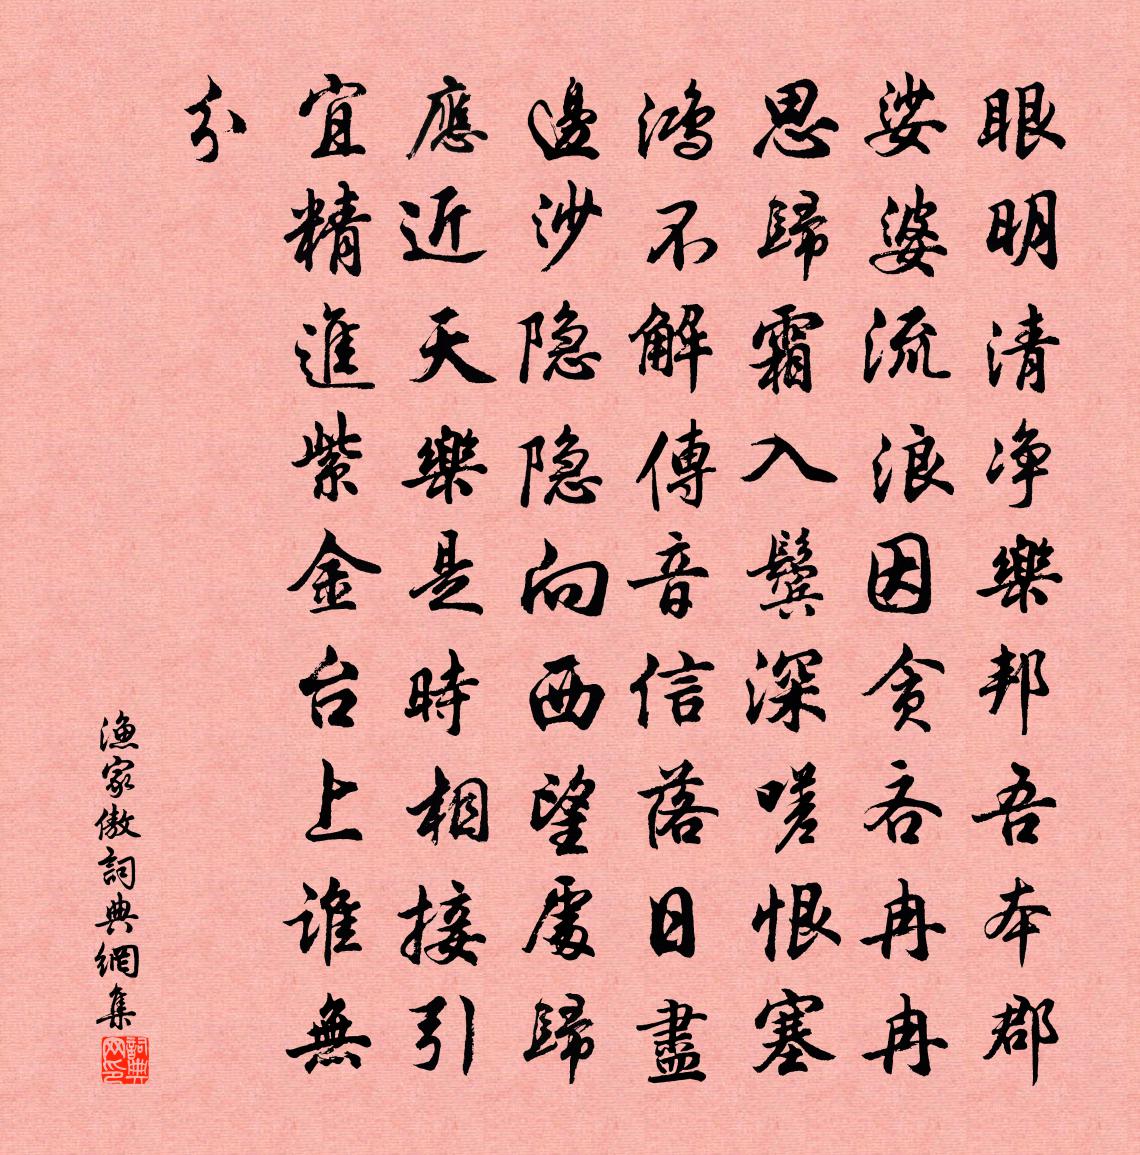 眼明清净樂邦吾本郡
娑婆流浪因貪吝冉冉
思歸霜入鬢深嗟恨塞
鴻不解傳音信落日盡
邊沙隐隐向西望處歸
應近天樂是時相接引
宜精進紫金台上誰無
分
漁家傲詞典網集
詞典网印